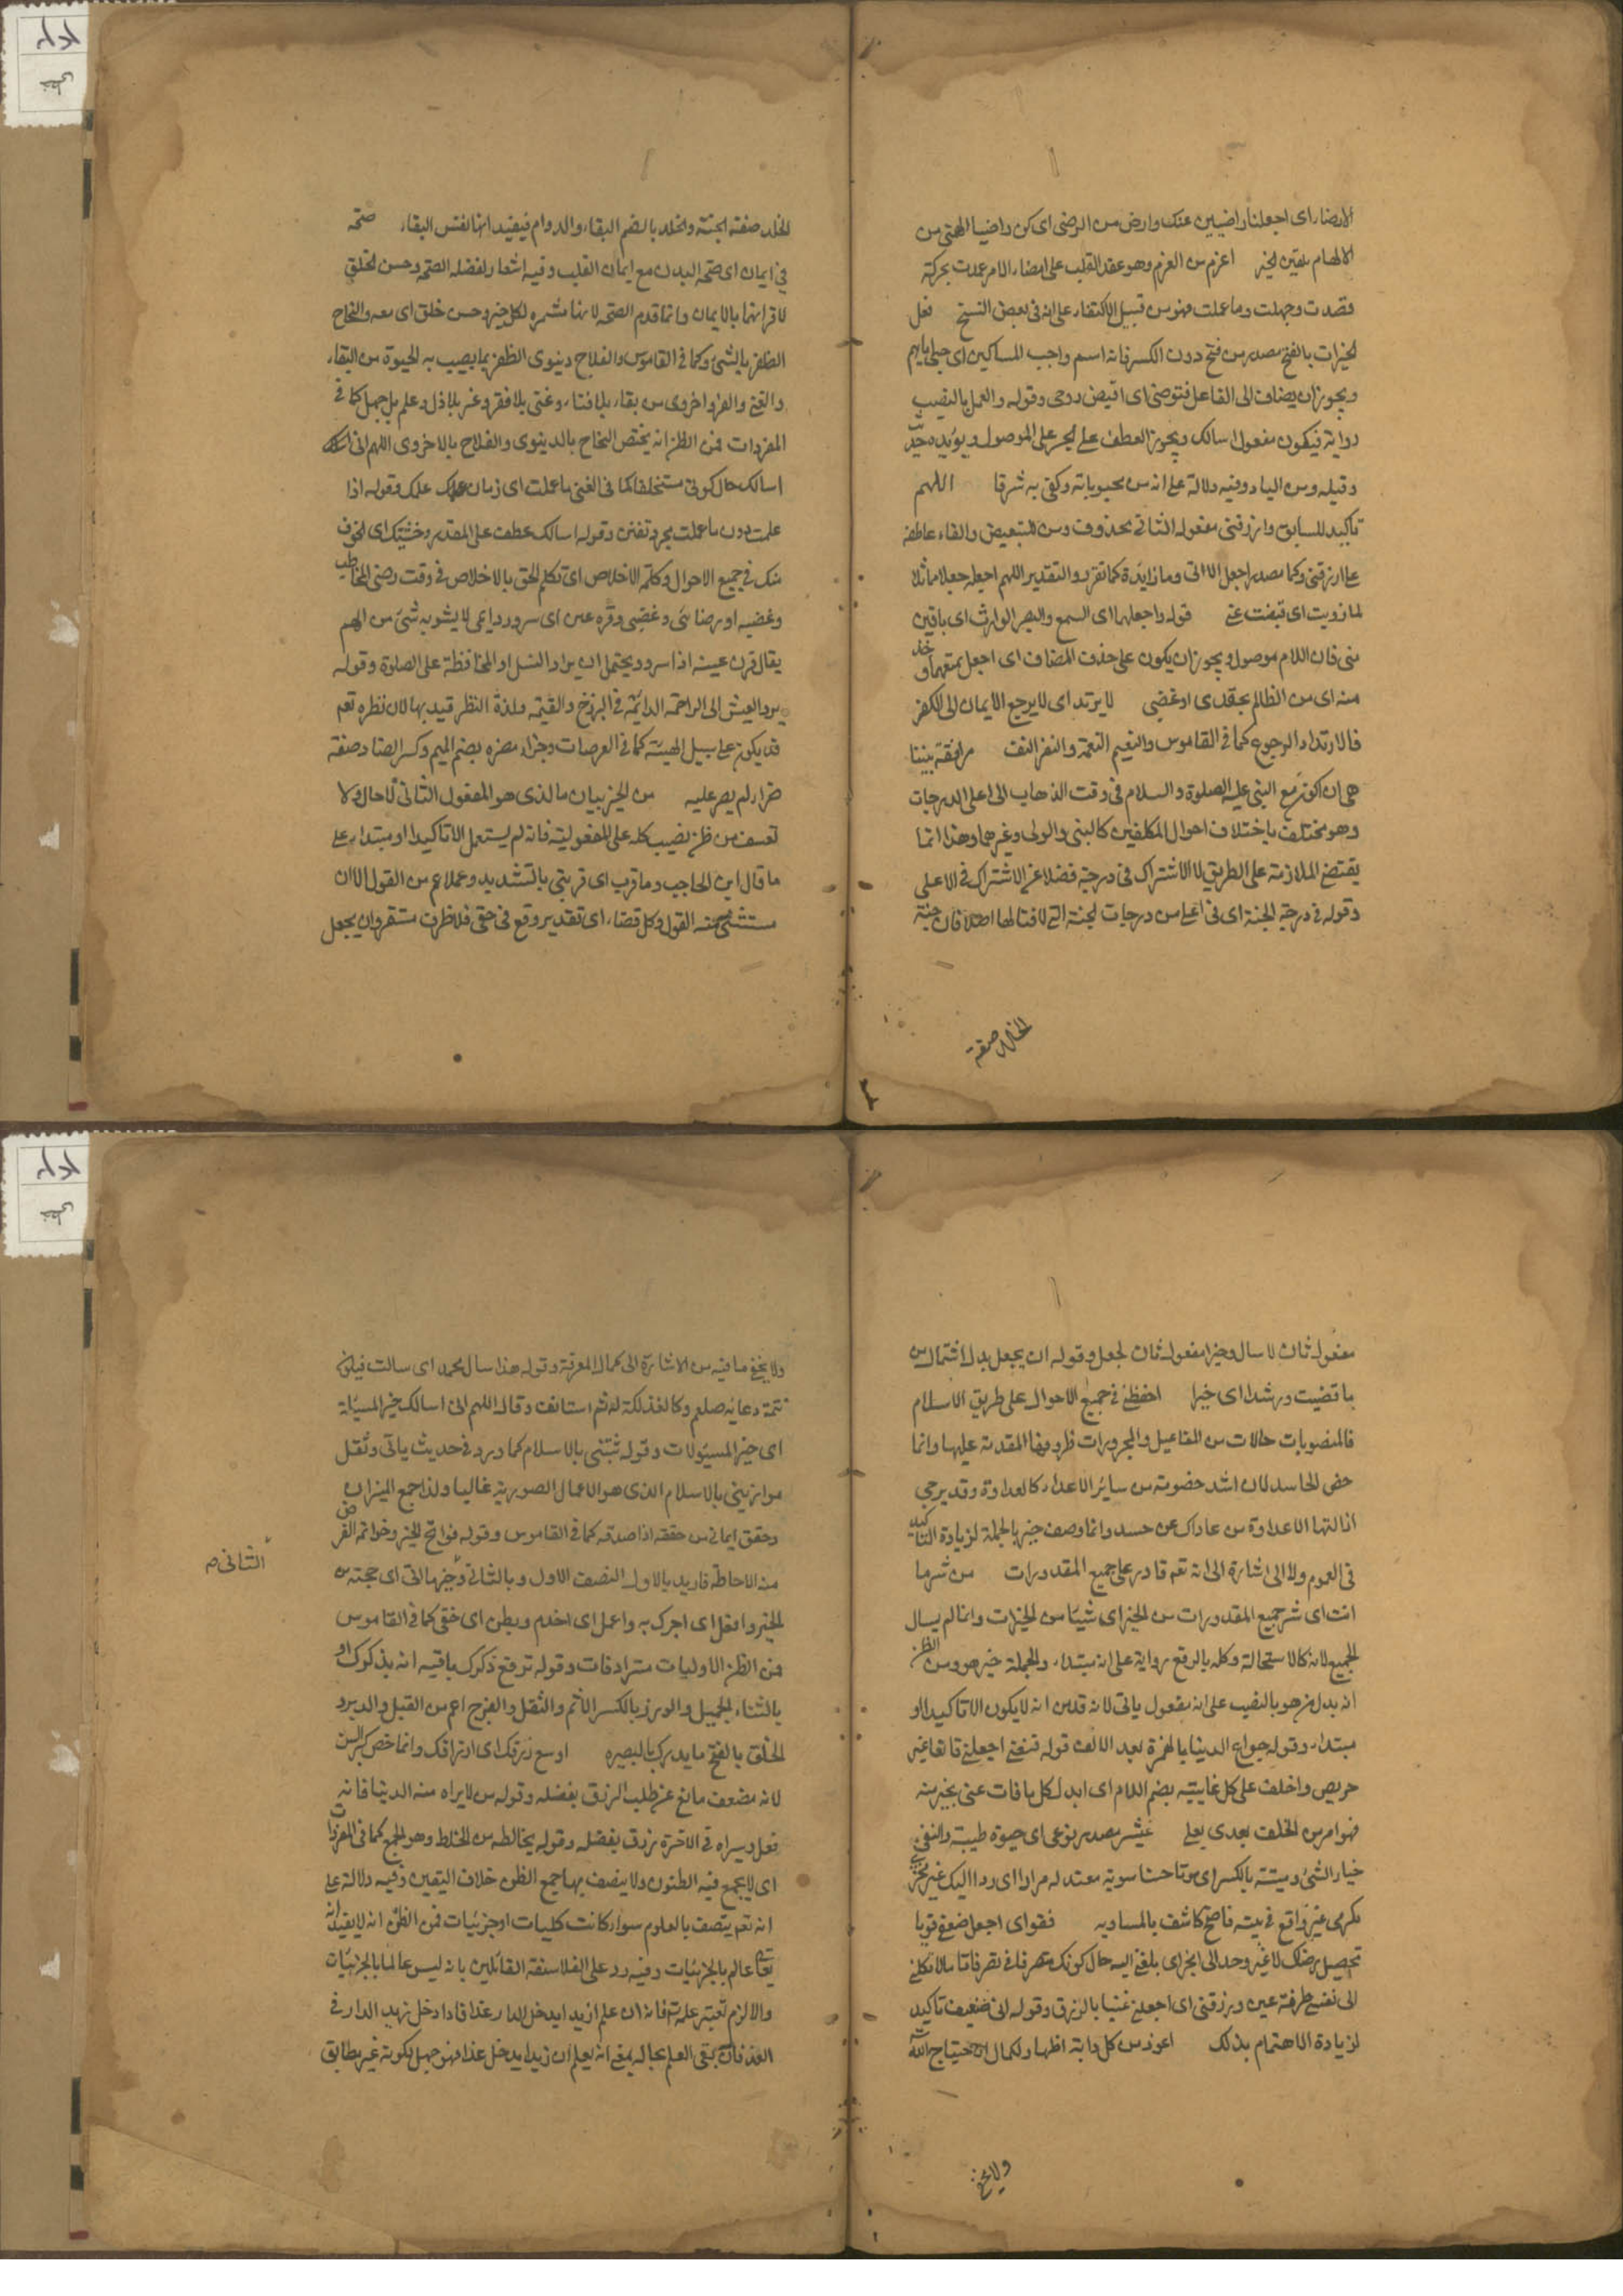 الارضاء اى اجعلنا راضيين عنك وارض من الرضى اى كن راضيا الهتى من
الالهام بلقين الخير اعزم من العزم وهو عقد القلب على امضاء الامر عمدت بحركة
قصدت وجهلت وما عملت فهو من قبيل الاكتفاء على انه فى بعض النسخ فعل
الخيرات بالفتح مصدر من فتح دون الكسر فانه اسم واحب المساكين اى حبى اياهم
ويجوز ان يضاف الى الفاعل فتوفنى اى اقبض روحى وقوله والعمل بالنصب
رواية فيكون مفعول اسالك ويجوز العطف على الجر على الموصول ويؤيده
وقيله ومن الياء وفيه دلالة على انه من محبوباته وكفى به شرفا اللهم
تأكيد للسابق وارزقنى مفعوله الثانى محذوف ومن للتبعيض والفاء عاطفة
على ارزقنى وكما مصدر اجعل الاتى وما زايدة كما تقرر والتقدير اللهم اجعله جعلا مماثلا
لما زويت اى قبضت عنى قوله واجعلهما اى السمع والبصر الوارث اى باقيين
منى فان اللام موصول ويجوز ان يكون على حذف المضاف اى اجعل تمتعهما وخذ
منه اى من الظالم بحقدى او غضبى لا يرتد اى لا يرجع الايمان الى الكفر
فالارتداد الرجوع كما فى القاموس والنعيم النعمة والنفر النفد مرافقة نبينا
هى ان اكون مع النبى عليه الصلوة والسلام فى وقت الذهاب الى اعلى الدرجات
وهو مختلف باختلاف احوال المكلفين كالنبى والولى وغيرهما وهذا انما
يقتضى الملازمة على الطريق لا الاشتراك فى درجته فضلا عن الاشتراك فى الاعلى
وقوله فى درجة الجنة اى فى اعلى من درجات الجنة التى لا فنا لها اصلا فان جنة
الخلد صفة
٣
الخلد صفة الجنة والخلد بالضم البقاء والدوام فيفيد انها نفس البقاء صحة
فى ايمان اى صحة البدن مع ايمان القلب وفيه اشعار لفضله الصحة وحسن الخلق
لاقرانهما بالايمان وانما قدم الصحة لانها مثمره لكل خير وحسن خلق اى معه والنجاح
الظفر بالشئ وكما فى القاموس والفلاح دنيوى الظفر بما يصيب به الحيوة من البقاء
والغنى والعز واخروى من بقاء بلا فناء وغنى بلا فقر وعز بلا ذل وعلم بل جهل كما فى
المفردات فمن الظن انه يختص النجاح بالدنيوى والفلاح بالاخروى اللهم انى اسئلك
اسالك حال كونى مستخلفا كما فى الغنى ما عملت اى زمان علمك وقوله اذا
علمت دون ما عملت مجرد تفنن وقوله اسالك عطف على المقدر وخشيتك اى الخوف
منك فى جميع الاحوال وكلمة الاخلاص اى تكلم الحق بالاخلاص فى وقت رضى المخاطب
وغضبه او رضائى وغضبى وقرة عين اى سرور دايمى لا يشوبه شئ من الهم
يقال قرت عينه اذا سرو ويحتمل ان يراد النسل او المحافظة على الصلوة وقوله
برد العيش الى الراحة الدائمة فى البرزخ والقيمة ولذة النظر قيد بها لان نظره تعم
قد يكون على سبيل الهيبة كما فى العرصات وجزاء مضره بضم الميم وكسر الضاد صفة
ضرار لم يصر عليه من الخير بيان ما الذى هو المفعول الثانى لا حال ولا
تعسف من ظن نصيب كله على المفعولية فانه لم يستعمل الا تاكيدا او مبتداء على
ما قال ابن الحاجب وما قرب اى قربنى بالتشديد وعملا عم من القول الا ان
مستثنى منه القول وكل قضاء اى تقدير وقع فى حقى فلا ظرف مستقر وان يجعل
مفعول ثان لاسال وخيرا مفعول ثان لجعل وقوله ان يجعل بدل اشتمال من
ما قضيت ورشدا اى خيرا احفظنى فى جميع الاحوال على طريق الاسلام
فالمنصوبات حالات من المفاعيل والمجرورات ظروفها المقدمة عليها وانما
خص الحاسد لان اشد خصومة من سائر الاعداء كالعداوة وقد يرجى
ازالتها الا عداوة من عاداك عن حسد وانما وصف خبرها بالجملة لزيادة التاكيد
فى العموم ولا الى اشارة الى انه تعم قادر على جميع المقدورات من شر ما
انت اى شر جميع المقدورات من الخير اى شيئا من الخيرات وانما لم يسال
الجميع لانه كالاستحالة وكله بالرفع رواية على انه مبتداء والجملة خبر هو ومن الظن
انه بدل من هو بالنصب على انه مفعول ياتى لانه قدمن انه لا يكون الا تاكيدا او
مبتداء وقوله جوامع الدنيا بالهمزة بعد الالف قوله قنعنى اجعلنى قانعا غير
حريص واخلف على كل غايبته بضم اللام اى ابدل كل ما فات عنى بخير منه
فهو امر من الخلف بعدى بعلى عيشة مصدر نوعى اى حيوة طيبة والنقى
خيار الشئ وميتة بالكسر اى موتا حسنا سوية معتدله مرادا اى ردا اليك غير مخزى
مكرمى غير واقع فى بيته فاضح كاشف بالمساويه فقو اى اجعل ضعفى قويا
تحصيل رضاك لا غير وحدالى الخير اى بلغنى اليه حال كونك متصرفا فى تصرفاتا ما لا تكلنى
الى نفسى طرفة عين ورزقنى اى اجعلنى غنيا بالرزق وقوله انى ضعيف تاكيد
لزيادة الاهتمام بذلك اعوذ من كل دابة اظهار لكمال الاحتياج الله
ولا يخفى
ولا يخفى ما فيه من الاشارة الى كمال المعرفة وقوله هذا سال محمد اى سالت فيكون
تتمة دعائه صلعم وكالفذلكة له ثم استانف وقال اللهم انى اسالك خير المسئلة
اى خير المسئولات وقوله ثبتنى بالاسلام كما ورد فى حديث ياتى وثقل
موازينى بالاسلام الذى هو الاعمال الصورية غاليا ولذا جمع الميزان
وحقق ايمانى من حققه اذا صدقه كما فى القاموس وقوله فواتح الخير وخواتمه الغرض
منه الاحاطة فاريد بالاول النصف الاول وبالثانى وخيرها اتى اى حجته من
الثانى م
الخير وافعل اى اجرك به واعمل اى اخدم وبطن اى خفى كما فى القاموس
فمن الظن الاوليات مترادفات وقوله ترفع ذكرك باقيه انه يذكرك او
بالثناء الجميل والوزر بالكسر الاثم والثقل والفرج اعم من القبل والدبر و
الخلق بالفتح ما يدرك بالبصيره اوسع رزقك اى ارتزاقك وانما خص كبر السن
لانه مضعف مانع عن طلب الرزق بفضله وقوله من لا يراه منه الدنيا فانه
فعل وسيراه فى الاخرة نزدق بفضله وقوله يخالطه من الخلط وهو الجمع كما فى المفردات
اى لا يجمع فيه الظنون ولا يتصف بها جمع الظن خلاف اليقين وفيه دلالة على
انه تعم يتصف بالعلوم سواء كانت كليات او جزئيات فمن الظن انه لا يفيد انه
تعا عالم بالجزئيات وفيه رد على الفلاسفة القائلين بانه ليس عالما بالجزئيات
والا لزم تغير علمه فانه ان علم ان زيدا يدخل الدار غدا فاذا دخل زيد الدار فى
الغد فان بقى العلم بحاله بمعنى انه يعلم ان زيدا يدخل غدا فهو جهل لكونه غير مطابق